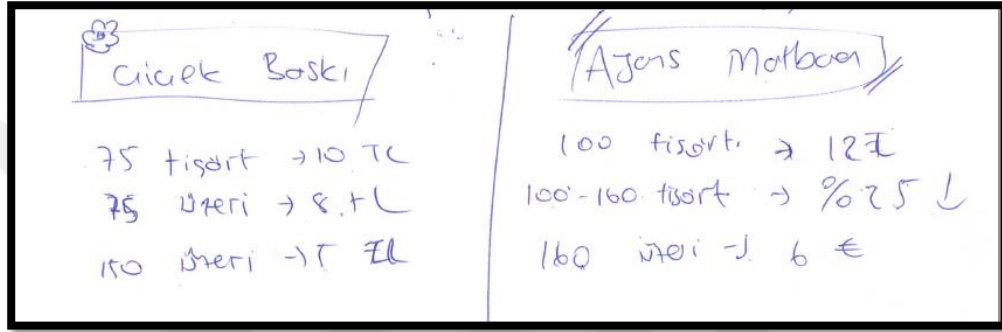 Çiçek Baskı
75 tişört → 10 TL
75 üzeri → 8 TL
150 üzeri → 5 TL
Ajans Matbaa
100 tişört → 12 ₺
100-160 tişört → %25 ↓
160 üzeri → 6 €